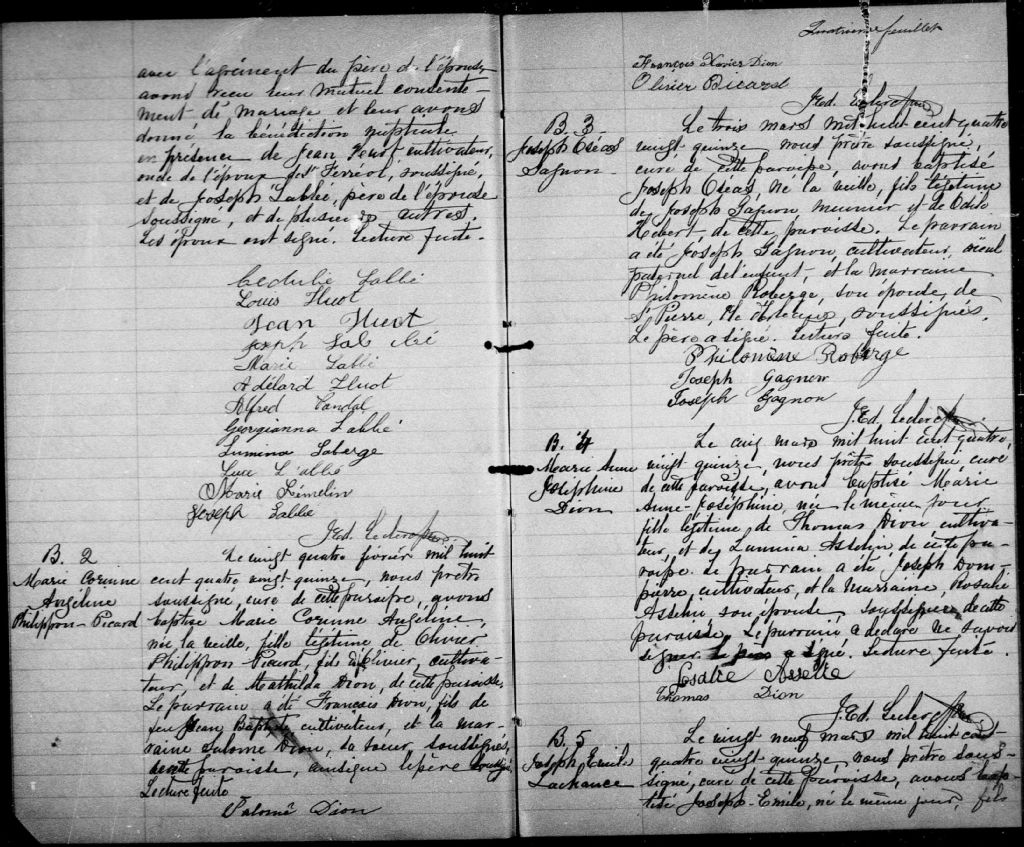 avec l'agrément du père de l'épouse
avons reçu leur mutuel consente-
ment de mariage et leur avons
donné la bénédiction nuptiale
en présence de Jean Huot cultivateur,
oncle de l'époux de St Ferréol, soussigné,
et de Joseph Labbé, père de l'épouse
soussigné, et de plusieurs autres.
Les époux ont signé. Lecture faite.
Cédulie Labbé
Louis Huot
Jean Huot
Joseph Labbé
Marie Labbé
Adélard Huot
Alfred
Georgianna Labbé
Lumina Laberge
Luce Labbé
Marie Rémelin
Joseph Labbé
J.Ed. Leclerc Ptre
B. 2
Marie Corinne
Angéline
Philippron-Picard
Le vingt quatre février mil huit
cent quatre vingt quinze, nous prêtre
soussigné, curé de cette paroisse, avons
baptisé Marie Corinne Angéline,
née la veille, fille légitime de Olivier
Philippron Picard, fils d'Olivier, cultiva-
teur, et de Mathilda Dion, de cette paroisse.
Le parrain a été François Dion, fils de
feu Jean Baptiste cultivateur, et la mar-
raine Salomé Dion, sa soeur, soussignés,
de cette paroisse, ainsi que le père soussigné
Lecture faite
Salomé Dion
Quatrième feuillet
François Xavier Dion
Olivier Picard
J.Ed. Leclerc Ptre
B. 3
Joseph Oséas
Gagnon
Le trois mars mil huit cent quatre
vingt quinze nous prêtre soussigné,
curé de cette paroisse, avons baptisé
Joseph Oséas, né la veille, fils légitime
de Joseph Gagnon meunier et de Odile
Hébert de cette paroisse. Le parrain
a été Joseph Gagnon cultivateur, aïeul
paternel de l'enfant, et la marraine
Philomène Roberge, son épouse, de
St Pierre, Ile d'Orléans, soussignés.
Le père a signé. Lecture faite.
Philomène Roberge
Joseph Gagnon
Joseph Gagnon
J.Ed. Leclerc Ptre
B. 4
Marie Anne
Joséphine
Dion
Le cinq mars mil huit cent quatre
vingt quinze, nous prêtre soussigné, curé
de cette paroisse, avons baptisé Marie
Anne-Joséphine, née le même jour
fille légitime de Thomas Dion cultiva-
teur, et de Lumina Asselin de cette pa-
roisse. Le parrain a été Joseph Dom-
pierre, cultivateur, et la marraine, Rosalie
Asselin son épouse soussignée de cette
paroisse. Le parrain a déclaré ne savoir
signer. le père a signé. Lecture faite.
Asselin
Thomas Dion
J.Ed. Leclerc Ptre
B. 5
Joseph Emile
Lachance
Le vingt neuf mars mil huit cent
quatre vingt quinze nous prêtre sous-
signé, curé de cette paroisse, avons bap-
tisé Joseph-Emile, né le même jour, fils